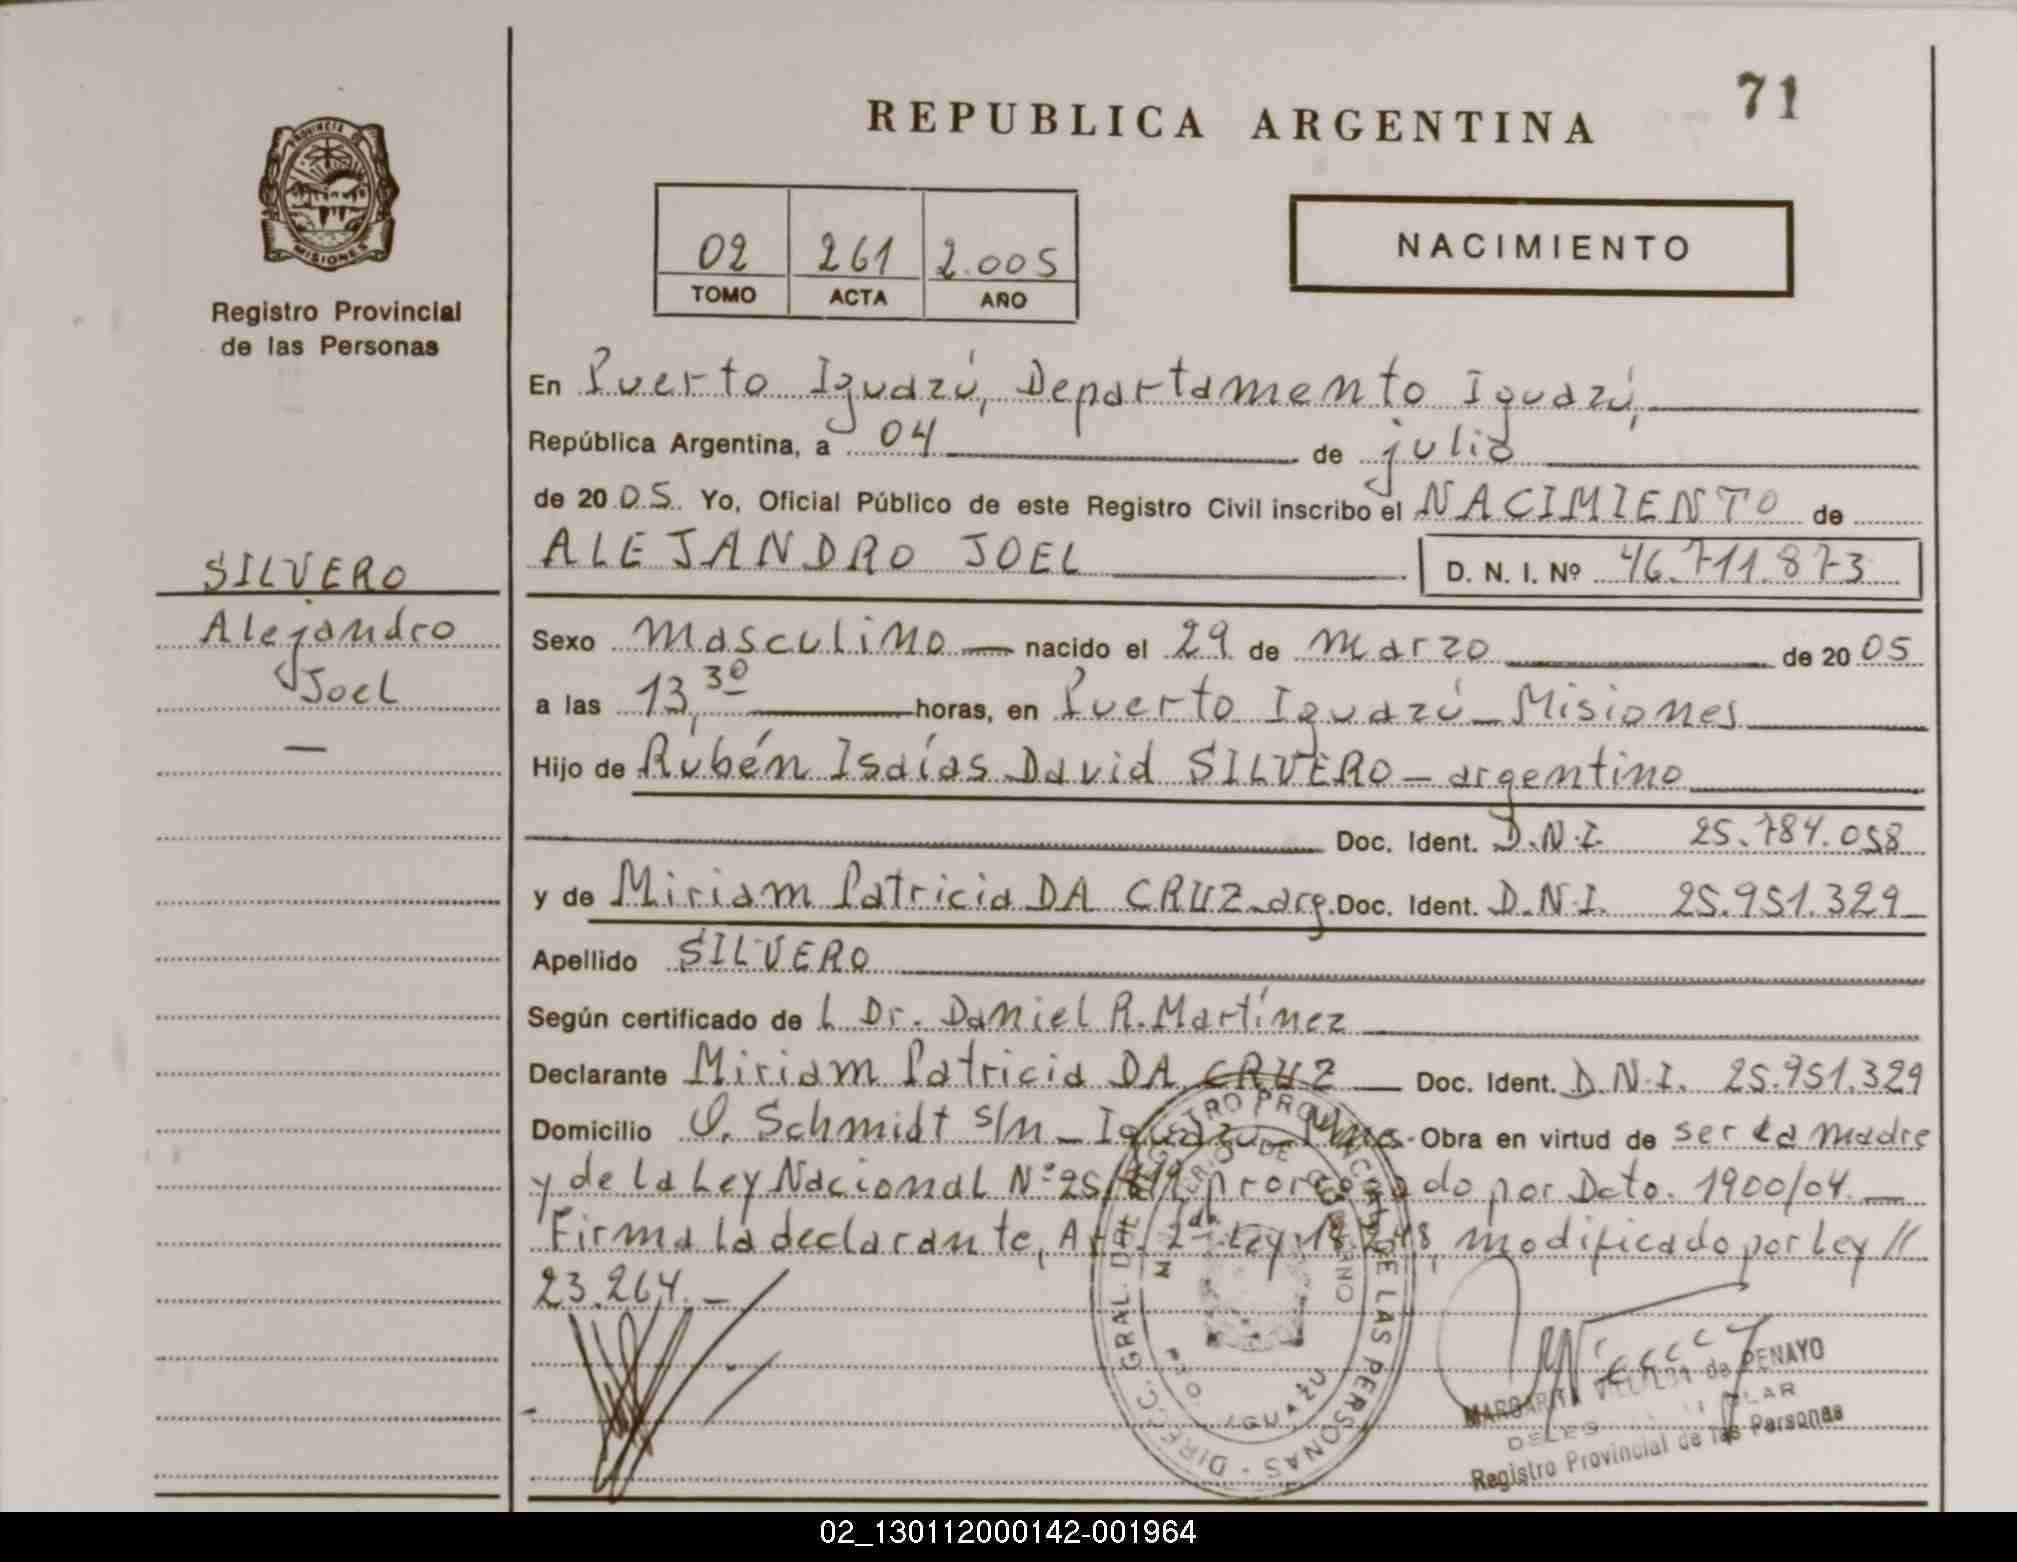 71
REPUBLICA ARGENTINA
PROVINCIA DE
MISIONES
Registro Provincial
de las Personas
02 261 2.005
TOMO ACTA AÑO
NACIMIENTO
En Puerto Iguazú, Departamento Iguazú,
República Argentina, a 04 de julio
de 20 05 Yo, Oficial Público de este Registro Civil inscribo el NACIMIENTO de
ALEJANDRO JOEL D. N. I. Nº 46.711.873
SILVERO
Alejandro
Joel
Sexo masculino nacido el 29 de marzo de 20 05
a las 13,30 horas, en Puerto Iguazú - Misiones
Hijo de Rubén Isaías David SILVERO - argentino
Doc. Ident. D.N.I. 25.784.058
y de Miriam Patricia DA CRUZ - arg. Doc. Ident. D.N.I. 25.951.329
Apellido SILVERO
Según certificado de L Dr. Daniel R. Martínez
Declarante Miriam Patricia DA CRUZ Doc. Ident. D.N.I. 25.951.329
Domicilio O. Schmidt s/n - Iguazú - Obra en virtud de ser la madre
y de la Ley Nacional Nº por Dcto. 1900/04.
Firma la declarante, Ley 18.248, modificado por Ley //
23.264. -
DIREC. GRAL. DEL REGISTRO PROVINCIAL DE LAS PERSONAS
IGUAZU
MARGARITA VILLALBA de PENAYO
Registro Provincial de las Personas
02_130112000142-001964